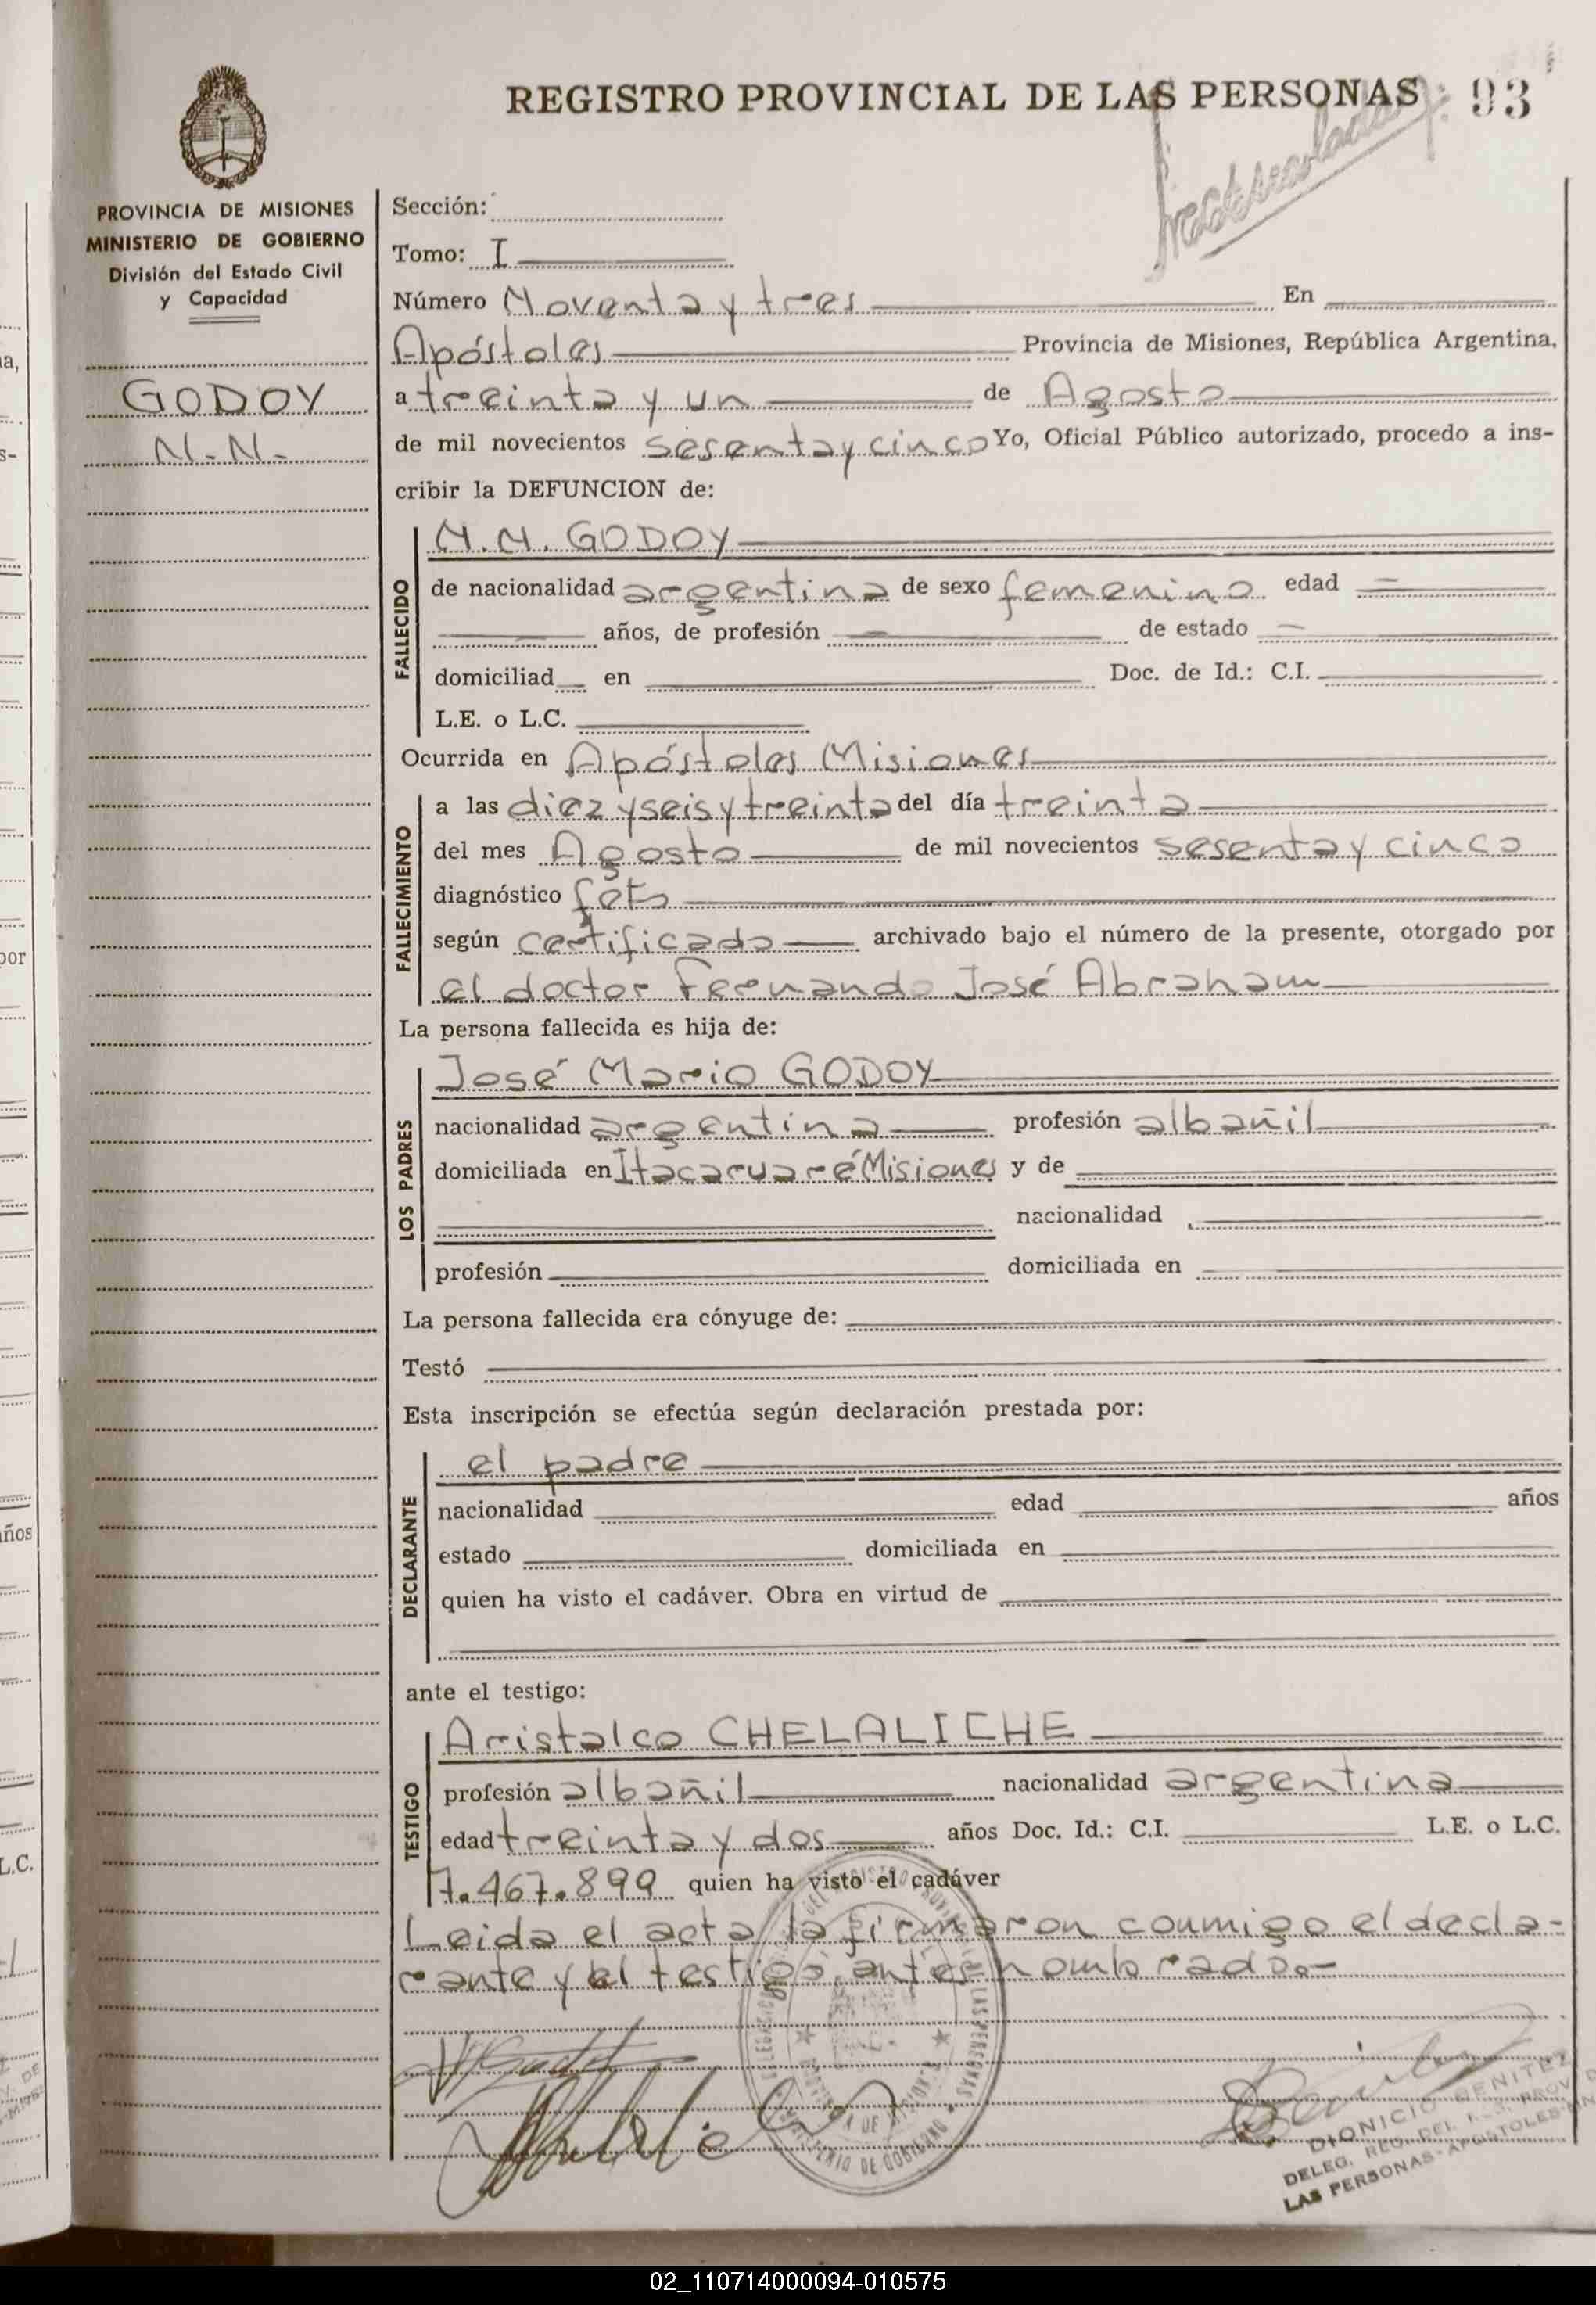 REGISTRO PROVINCIAL DE LAS PERSONAS 93
PROVINCIA DE MISIONES
MINISTERIO DE GOBIERNO
División del Estado Civil
y Capacidad
GODOY
N.N.
Sección:
Tomo: I
Número Noventa y tres En
Apóstoles Provincia de Misiones, República Argentina,
a treinta y un de Agosto
de mil novecientos sesenta y cinco Yo, Oficial Público autorizado, procedo a ins-
cribir la DEFUNCION de:
N.N. GODOY
FALLECIDO
de nacionalidad argentina de sexo femenino edad
años, de profesión de estado
domiciliad en Doc. de Id.: C.I.
L.E. o L.C.
Ocurrida en Apóstoles Misiones
FALLECIMIENTO
a las diez y seis y treinta del día treinta
del mes Agosto de mil novecientos sesenta y cinco
diagnóstico feto
según certificado archivado bajo el número de la presente, otorgado por
el doctor Fernando José Abraham
La persona fallecida es hija de:
LOS PADRES
José Mario GODOY
nacionalidad argentina profesión albañil
domiciliada en Itacaruaré Misiones y de
nacionalidad
profesión domiciliada en
La persona fallecida era cónyuge de:
Testó
Esta inscripción se efectúa según declaración prestada por:
DECLARANTE
el padre
nacionalidad edad años
estado domiciliada en
quien ha visto el cadáver. Obra en virtud de
ante el testigo:
TESTIGO
Aristalco CHELALICHE
profesión albañil nacionalidad argentina
edad treinta y dos años Doc. Id.: C.I. L.E. o L.C.
7.467.899 quien ha visto el cadáver
Leida el acta la firmaron conmigo el decla-
rante y el testigo antes nombrado.-
DIONICIO BENITEZ
DELEG. REG. DEL PROV. DE
LAS PERSONAS - APOSTOLES
MINISTERIO DE GOBIERNO
02_110714000094-010575